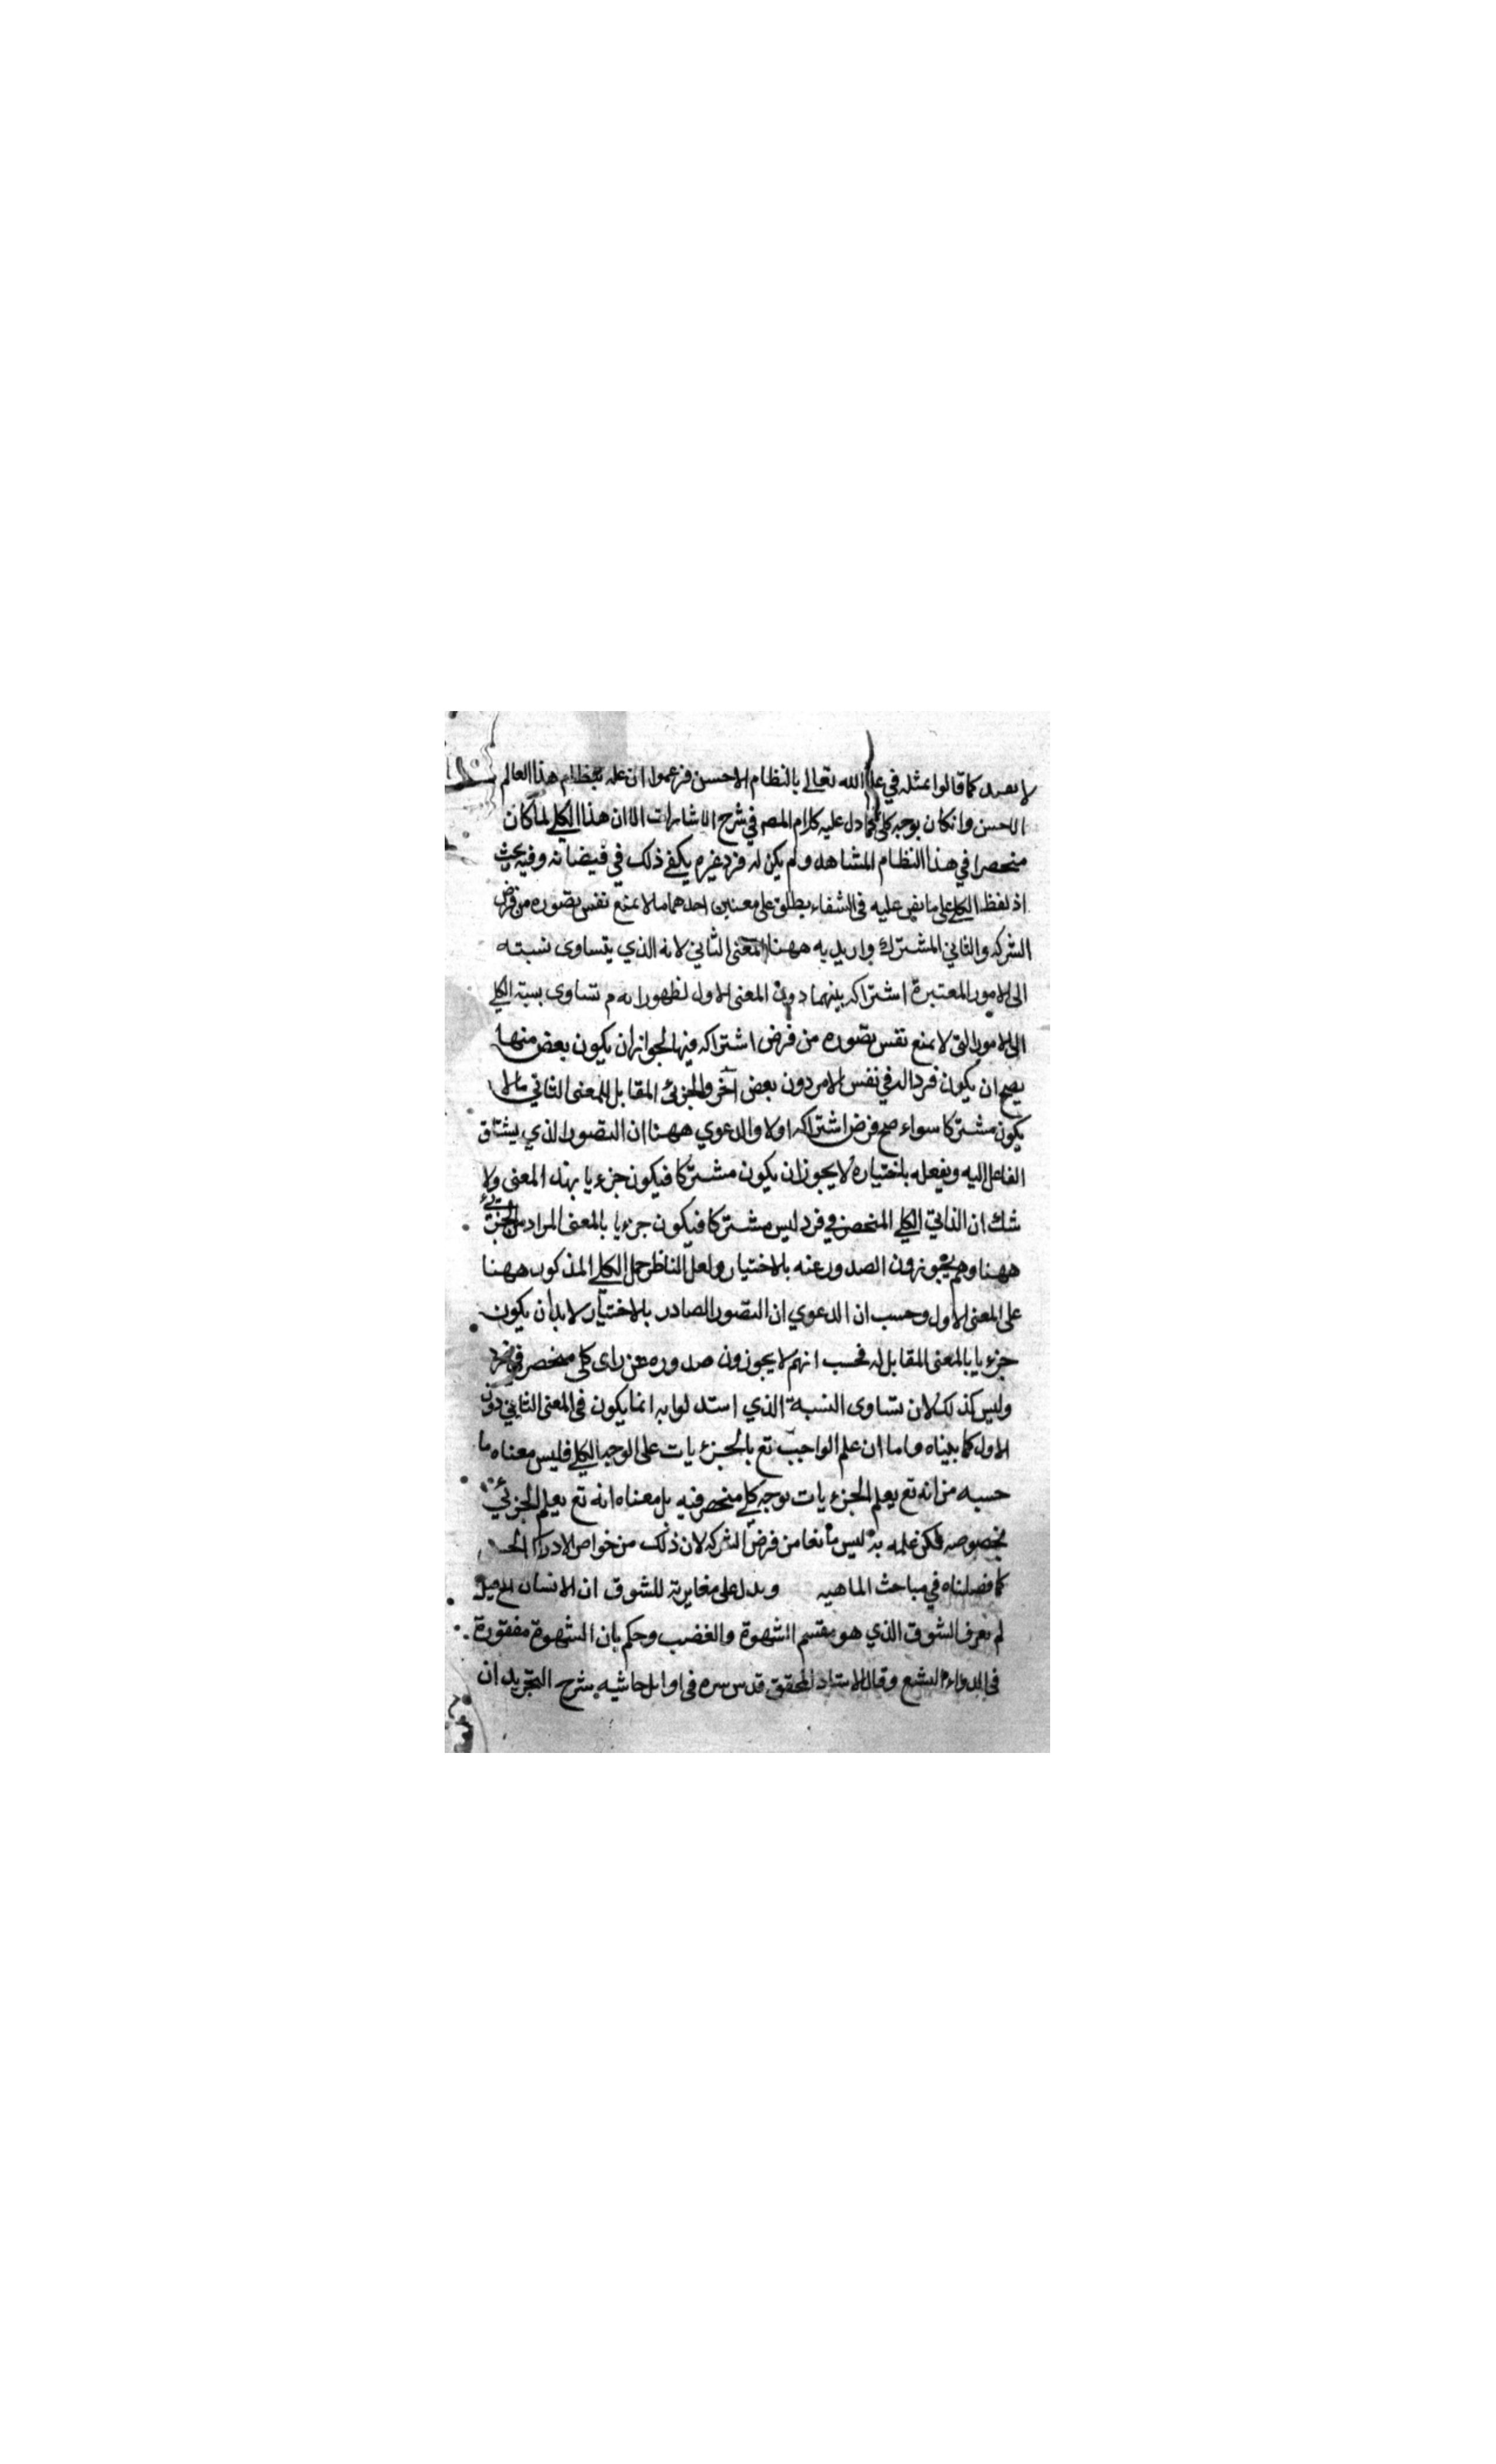 كما قالوا بمثله في علم الله تعالى بالنظام الاحسن فزعموا ان علمه بنظام هذا العالم
الاحسن وانكان بوجه كلي كما دل عليه كلام المص في شرح الاشارات الا ان هذا الكلي لما كان
منحصرا في هذا النظام المشاهد ولم يكن له فرد غيره يكفي ذلك في فيضانه وفيه بحث
اذ لفظ الكلي على ما نص عليه في الشفاء يطلق على معنيين احدهما ما لا يمنع نفس تصوره من فرض
الشركه والثاني المشترك واريد به ههنا المعنى الثاني لانه الذي يتساوى نسبته
الى الامور المعتبرة اشتراكه بينهما دون المعنى الاول لظهور انه لم تساوى نسبة الكلي
الى الامور التي لا يمنع نفس تصوره من فرض اشتراكه فيها لجواز ان يكون بعض منها
يصح ان يكون فردا له في نفس الامر دون بعض آخر والجزئى المقابل للمعنى الثاني ما لا
يكون مشتركا سواء صح فرض اشتراكه اولا والدعوي ههنا ان التصور الذي يشتاق
الفاعل اليه ويفعله باختياره لا يجوز ان يكون مشتركا فيكون جزءيا بهذا المعنى ولا
شك ان الذاتي الكلي المنحصر في فرد ليس مشتركا فيكون جزءيا بالمعنى المراد من الجزئي
ههنا وهم يجوزون الصدور عنه بالاختيار ولعل الناظر حمل الكلي المذكور ههنا
على المعنى الاول وحسب ان الدعوي ان التصور الصادر بالاختيار لا بد ان يكون
جزءيا بالمعنى المقابل له فحسب انهم لا يجوزون صدوره عن راى كلي منحصر في فرد
وليس كذلك لان تساوى النسبة الذي استدلوا به انما يكون في المعنى الثاني دون
الاول كما بيناه واما ان علم الواجب تع بالجزئيات على الوجه الكلي فليس معناه ما
حسبه من انه تع يعلم الجزءيات بوجه كلي منحصر فيه بل معناه انه تع يعلم الجزئي
بخصوصه لكن علمه به ليس مانعا من فرض الشركه لان ذلك من خواص الادراك
كما فصلناه في مباحث الماهيه ويدل على مغايرته للشوق ان الانسان
لم يعرف الشوق الذي هو مقسم الشهوة والغضب وحكم بان الشهوة مفقودة
في الدواء البشع وقال الاستاد المحقق قدس سره في اوايل حاشيه شرح التجريد ان